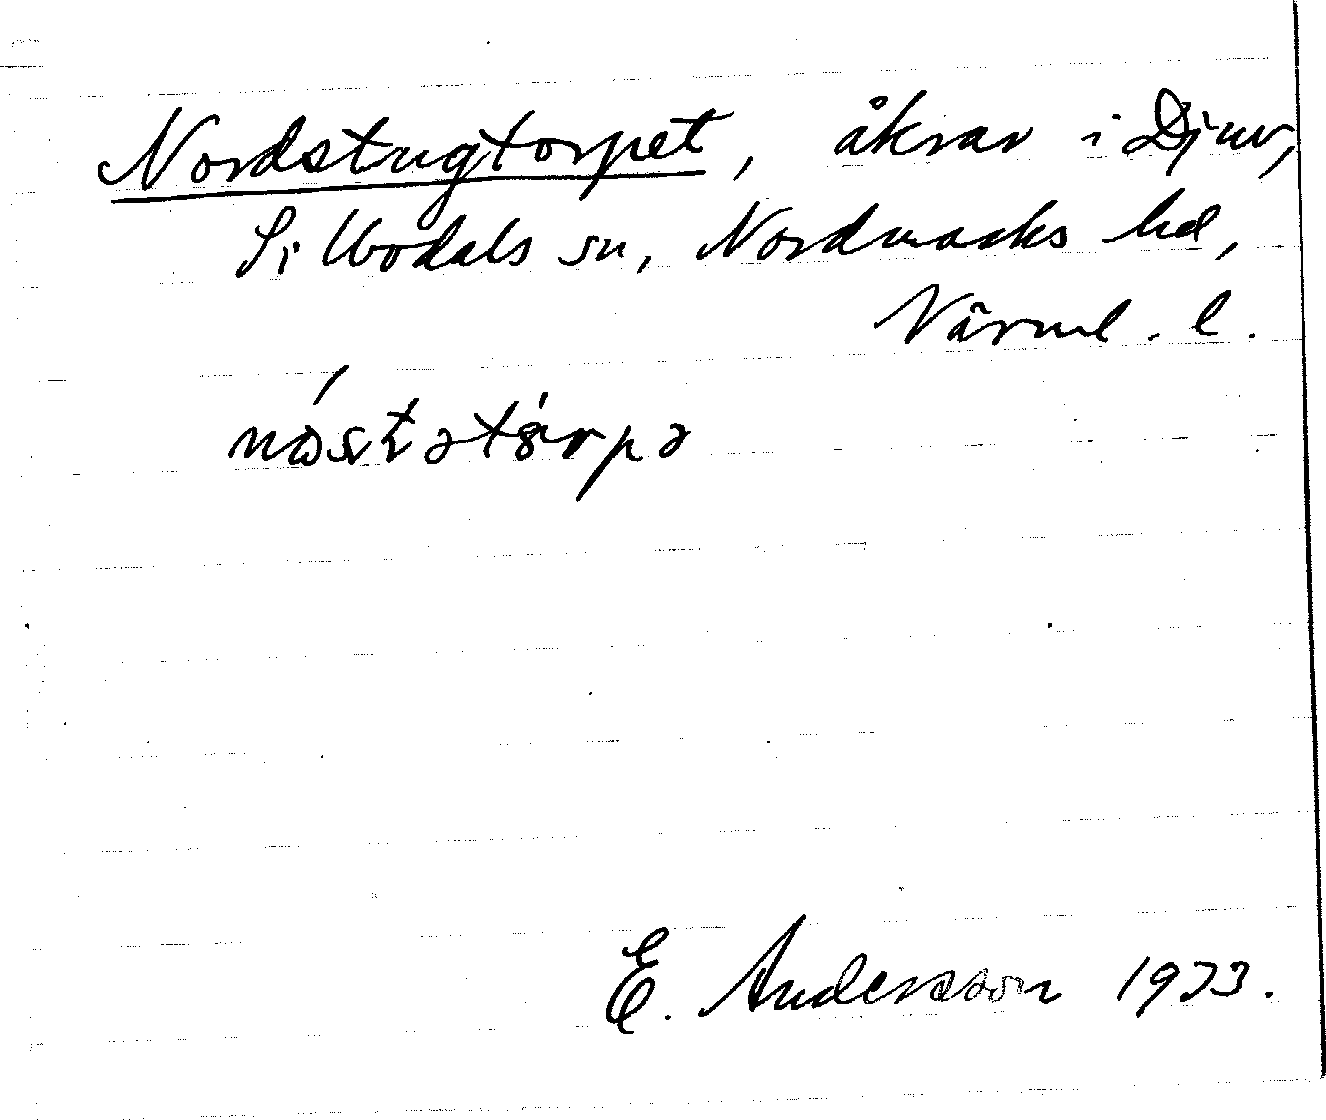 Nordstugtorpet, åkrar i Djuv,
Sillbodals sn, Nordmarks hd,
Värml. l.
E. Andersson 1923.